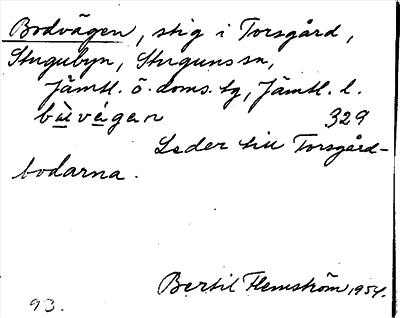 Bodvägen, stig i Torsgård,
Stugubyn, Stuguns sn,
Jämtl. ö. doms. tg, Jämtl. l.
bùvégen 329
Leder till Torsgård-
bodarna.
Bertil Flemström 1954.
93.